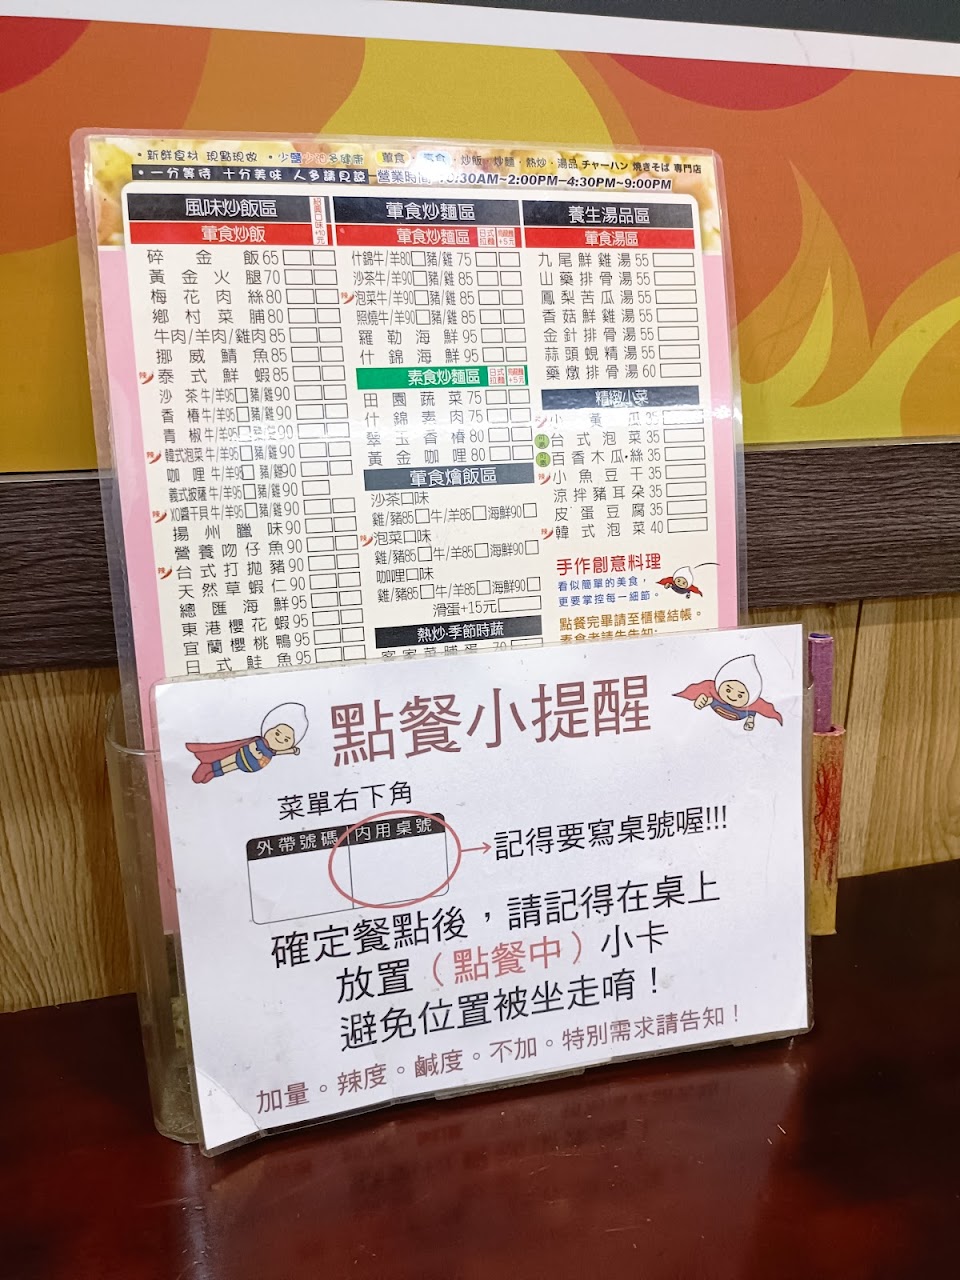 ・新鮮食材 現點現做 ・少鹽少油多健康 葷食・素食・炒飯・炒麵・熱炒・湯品 チャーハン 焼きそば 專門店
・一分等待 十分美味 人多請見諒 營業時間 10:30AM~2:00PM-4:30PM~9:00PM
風味炒飯區
葷食炒飯
碎金飯65
黃金火腿70
梅花肉絲80
鄉村菜脯80
牛肉/羊肉/雞肉85
挪威鯖魚85
辣 泰式鮮蝦85
沙茶牛/羊95 豬/雞90
香椿牛/羊95 豬/雞90
青椒牛/羊95 豬/雞90
辣 韓式泡菜牛/羊95 豬/雞90
咖哩牛/羊95 豬/雞90
義式披薩牛/羊95 豬/雞90
辣 XO醬干貝牛/羊95 豬/雞90
揚州臘味90
營養吻仔魚90
辣 台式打拋豬90
天然草蝦仁90
總匯海鮮95
東港櫻花蝦95
宜蘭櫻桃鴨95
日式鮭魚95
葷食炒麵區
葷食炒麵區 日式拉麵 烏龍麵+5元
什錦牛/羊80 豬/雞75
沙茶牛/羊90 豬/雞85
辣 泡菜牛/羊90 豬/雞85
照燒牛/羊90 豬/雞85
羅勒海鮮95
什錦海鮮95
素食炒麵區 日式拉麵 烏龍麵+5元
田園蔬菜75
什錦素肉75
翠玉香椿80
黃金咖哩80
葷食燴飯區
沙茶口味
雞/豬85 牛/羊85 海鮮90
辣 泡菜口味
雞/豬85 牛/羊85 海鮮90
咖哩口味
雞/豬85 牛/羊85 海鮮90
滑蛋+15元
熱炒‧季節時蔬
客家菜脯蛋 70
養生湯品區
葷食湯區
九尾鮮雞湯55
山藥排骨湯55
鳳梨苦瓜湯55
香菇鮮雞湯55
金針排骨湯55
蒜頭蜆精湯55
藥燉排骨湯60
精緻小菜
小黃瓜35
台式泡菜35
百香木瓜‧絲35
辣 小魚豆干35
涼拌豬耳朵35
皮蛋豆腐35
辣 韓式泡菜40
手作創意料理
看似簡單的美食，
更要掌控每一細節。
點餐完畢請至櫃檯結帳。
素食者請先告知:
點餐小提醒
菜單右下角
外帶號碼 內用桌號
記得要寫桌號喔!!!
確定餐點後，請記得在桌上
放置（點餐中）小卡
避免位置被坐走唷！
加量。辣度。鹹度。不加。特別需求請告知！